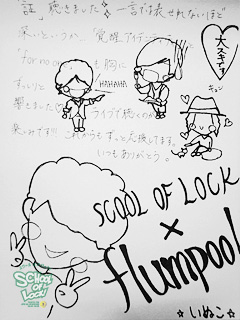 「証」聴きました 一言では表せれないほど
深いというか、「覚醒アイデンティティ」
「for no one」も胸に
HAHAHA
響きました ライブで聴くのが
楽しみです!! これからもずっと応援してます。
いつもありがとう。
大スキです
キュン
SCOOL OF LOCK
×
flumpool
SCHOOL OF LOCK!
いぬこ